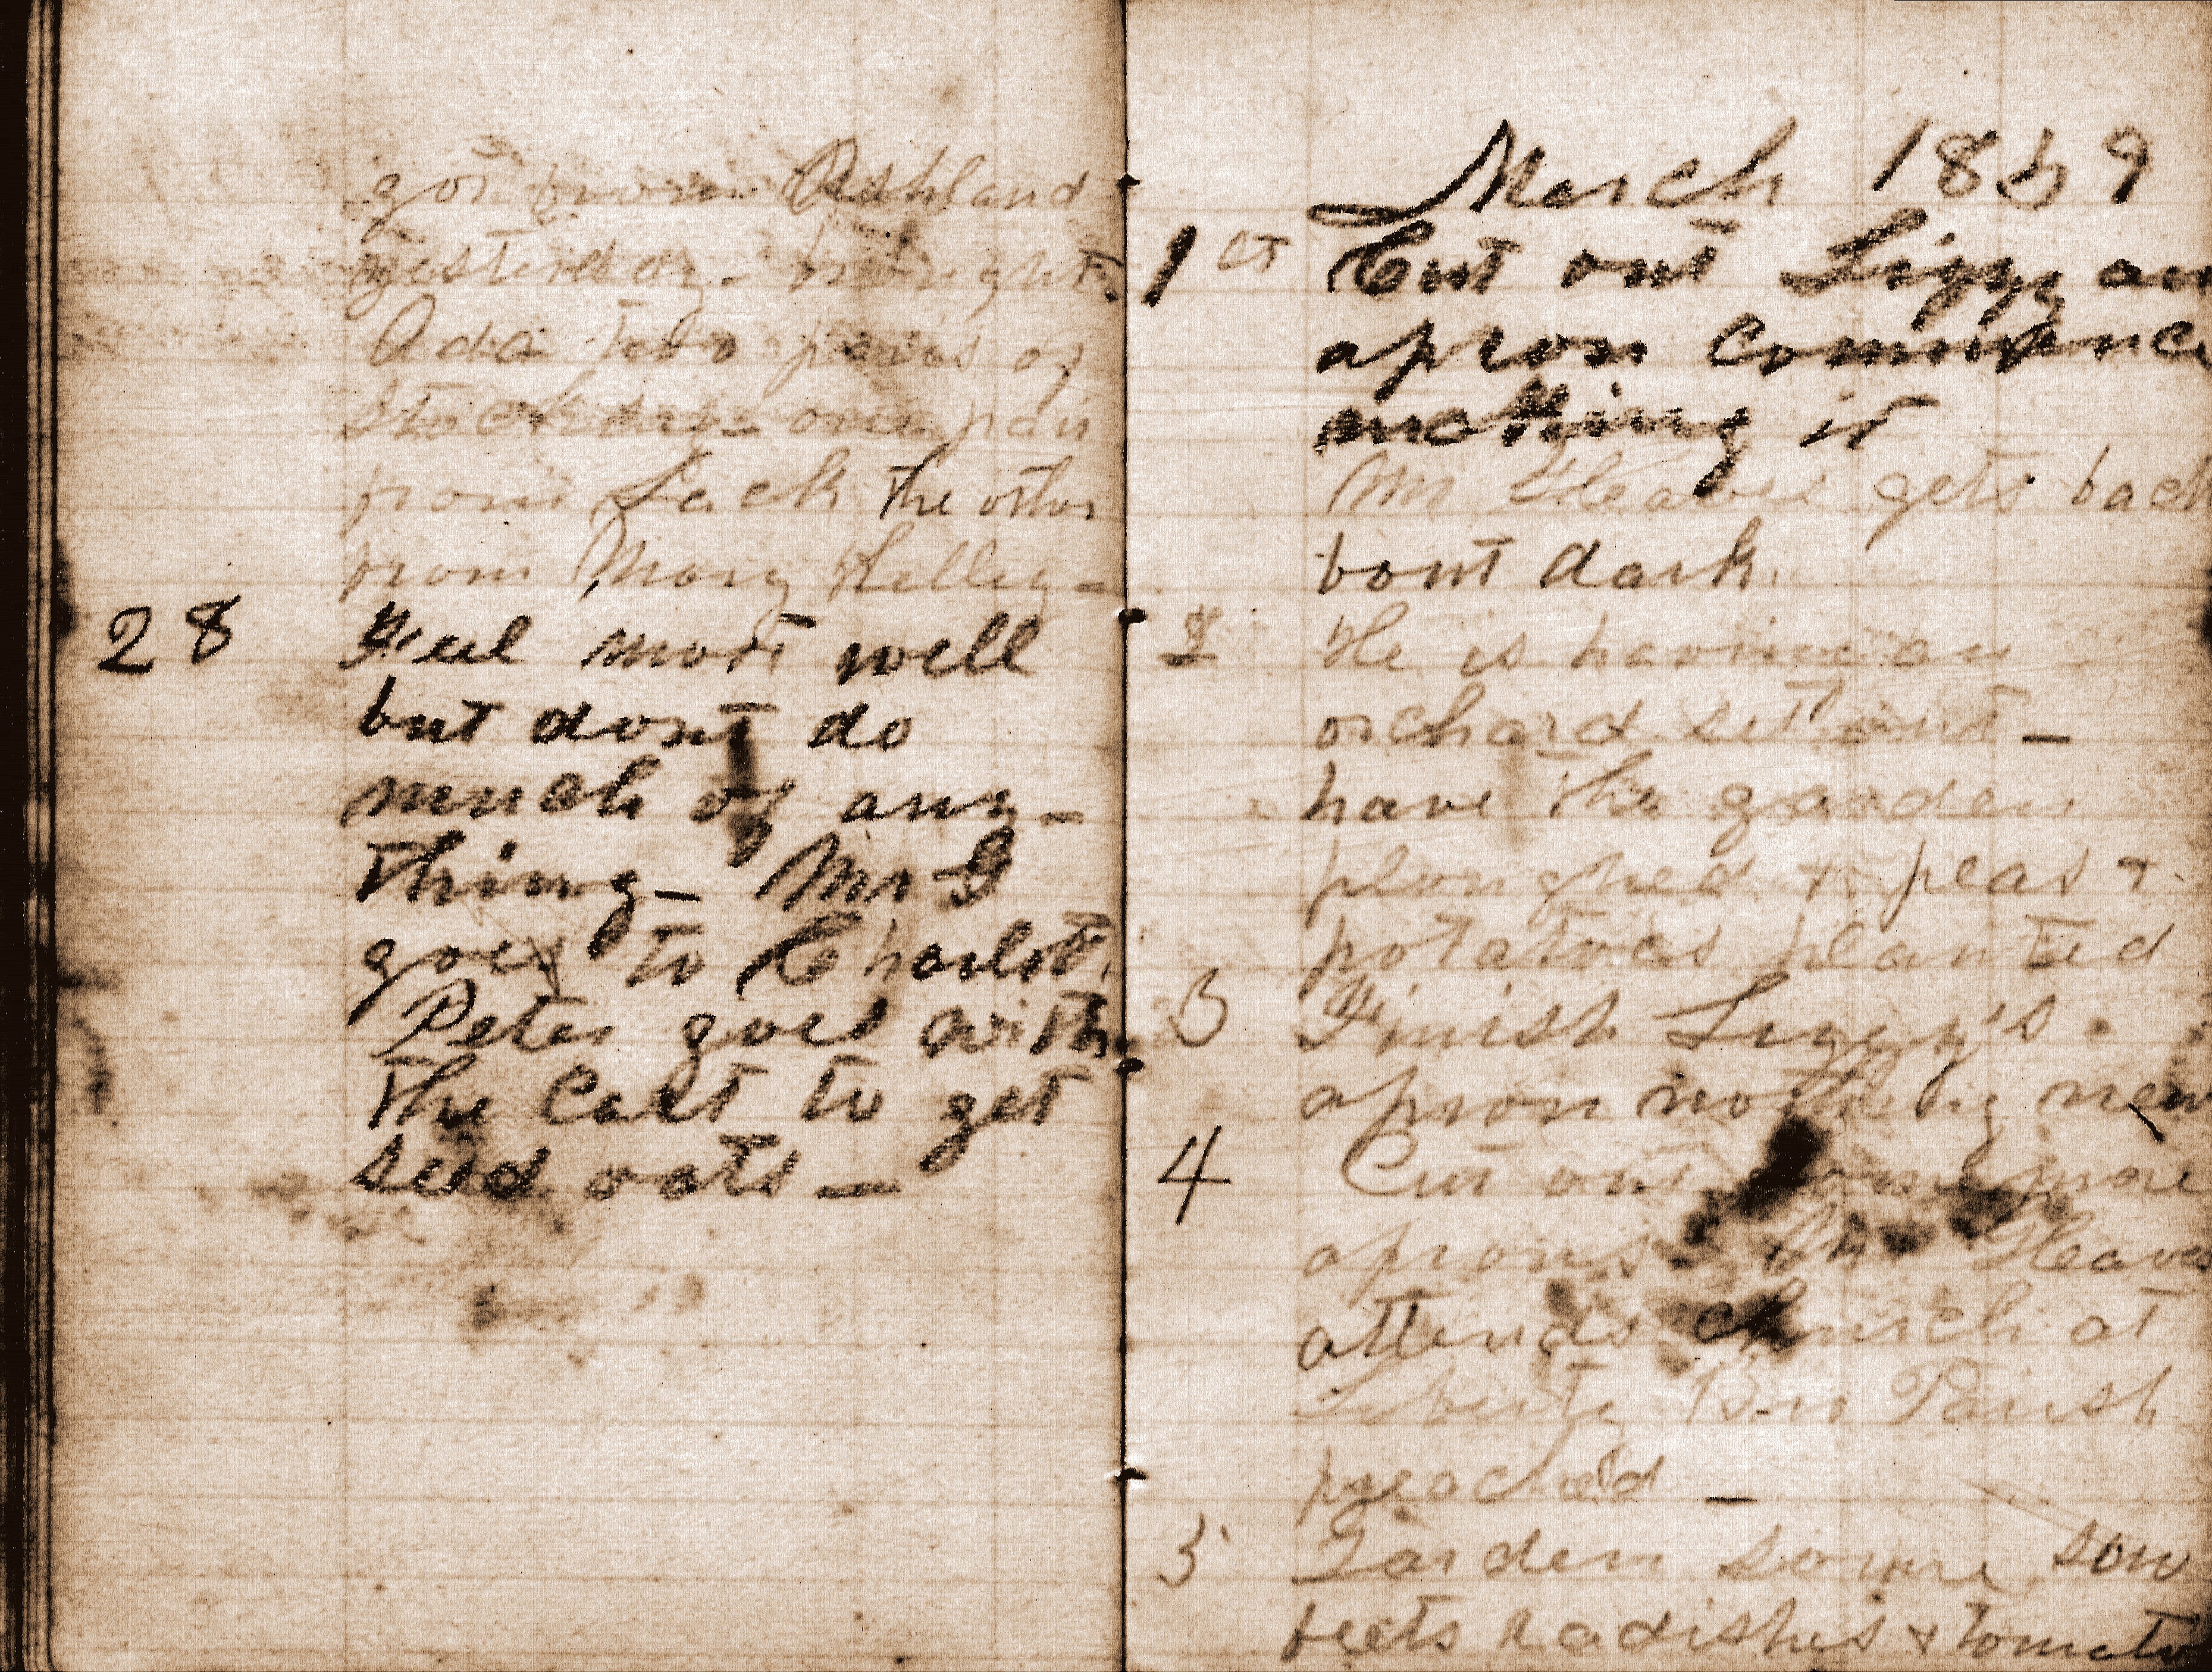 got from Ashland
yesterday - brought
Ada two pairs of
stockings - one pair
from Jack the other
from Mary Kelley -
28 Feel most well
but dont do
much of any-
thing - Mr G
goes to Charlott,
Peter goes with
the Cart to get
seed oats -
March 1859
1st Cut out Lizzy an
apron commence
making it
Mr Gleaves gets back
bout dark
2 He is having an
orchard set out -
have the garden
ploughed & peas &
potatoes planted
3 Finish Lizzy's
apron nothing new
4 Cut out some more
aprons - Mr Gleaves
attends church at
Liberty Bro Parish
preached -
5 Garden some, sow
beets radishes & tomato